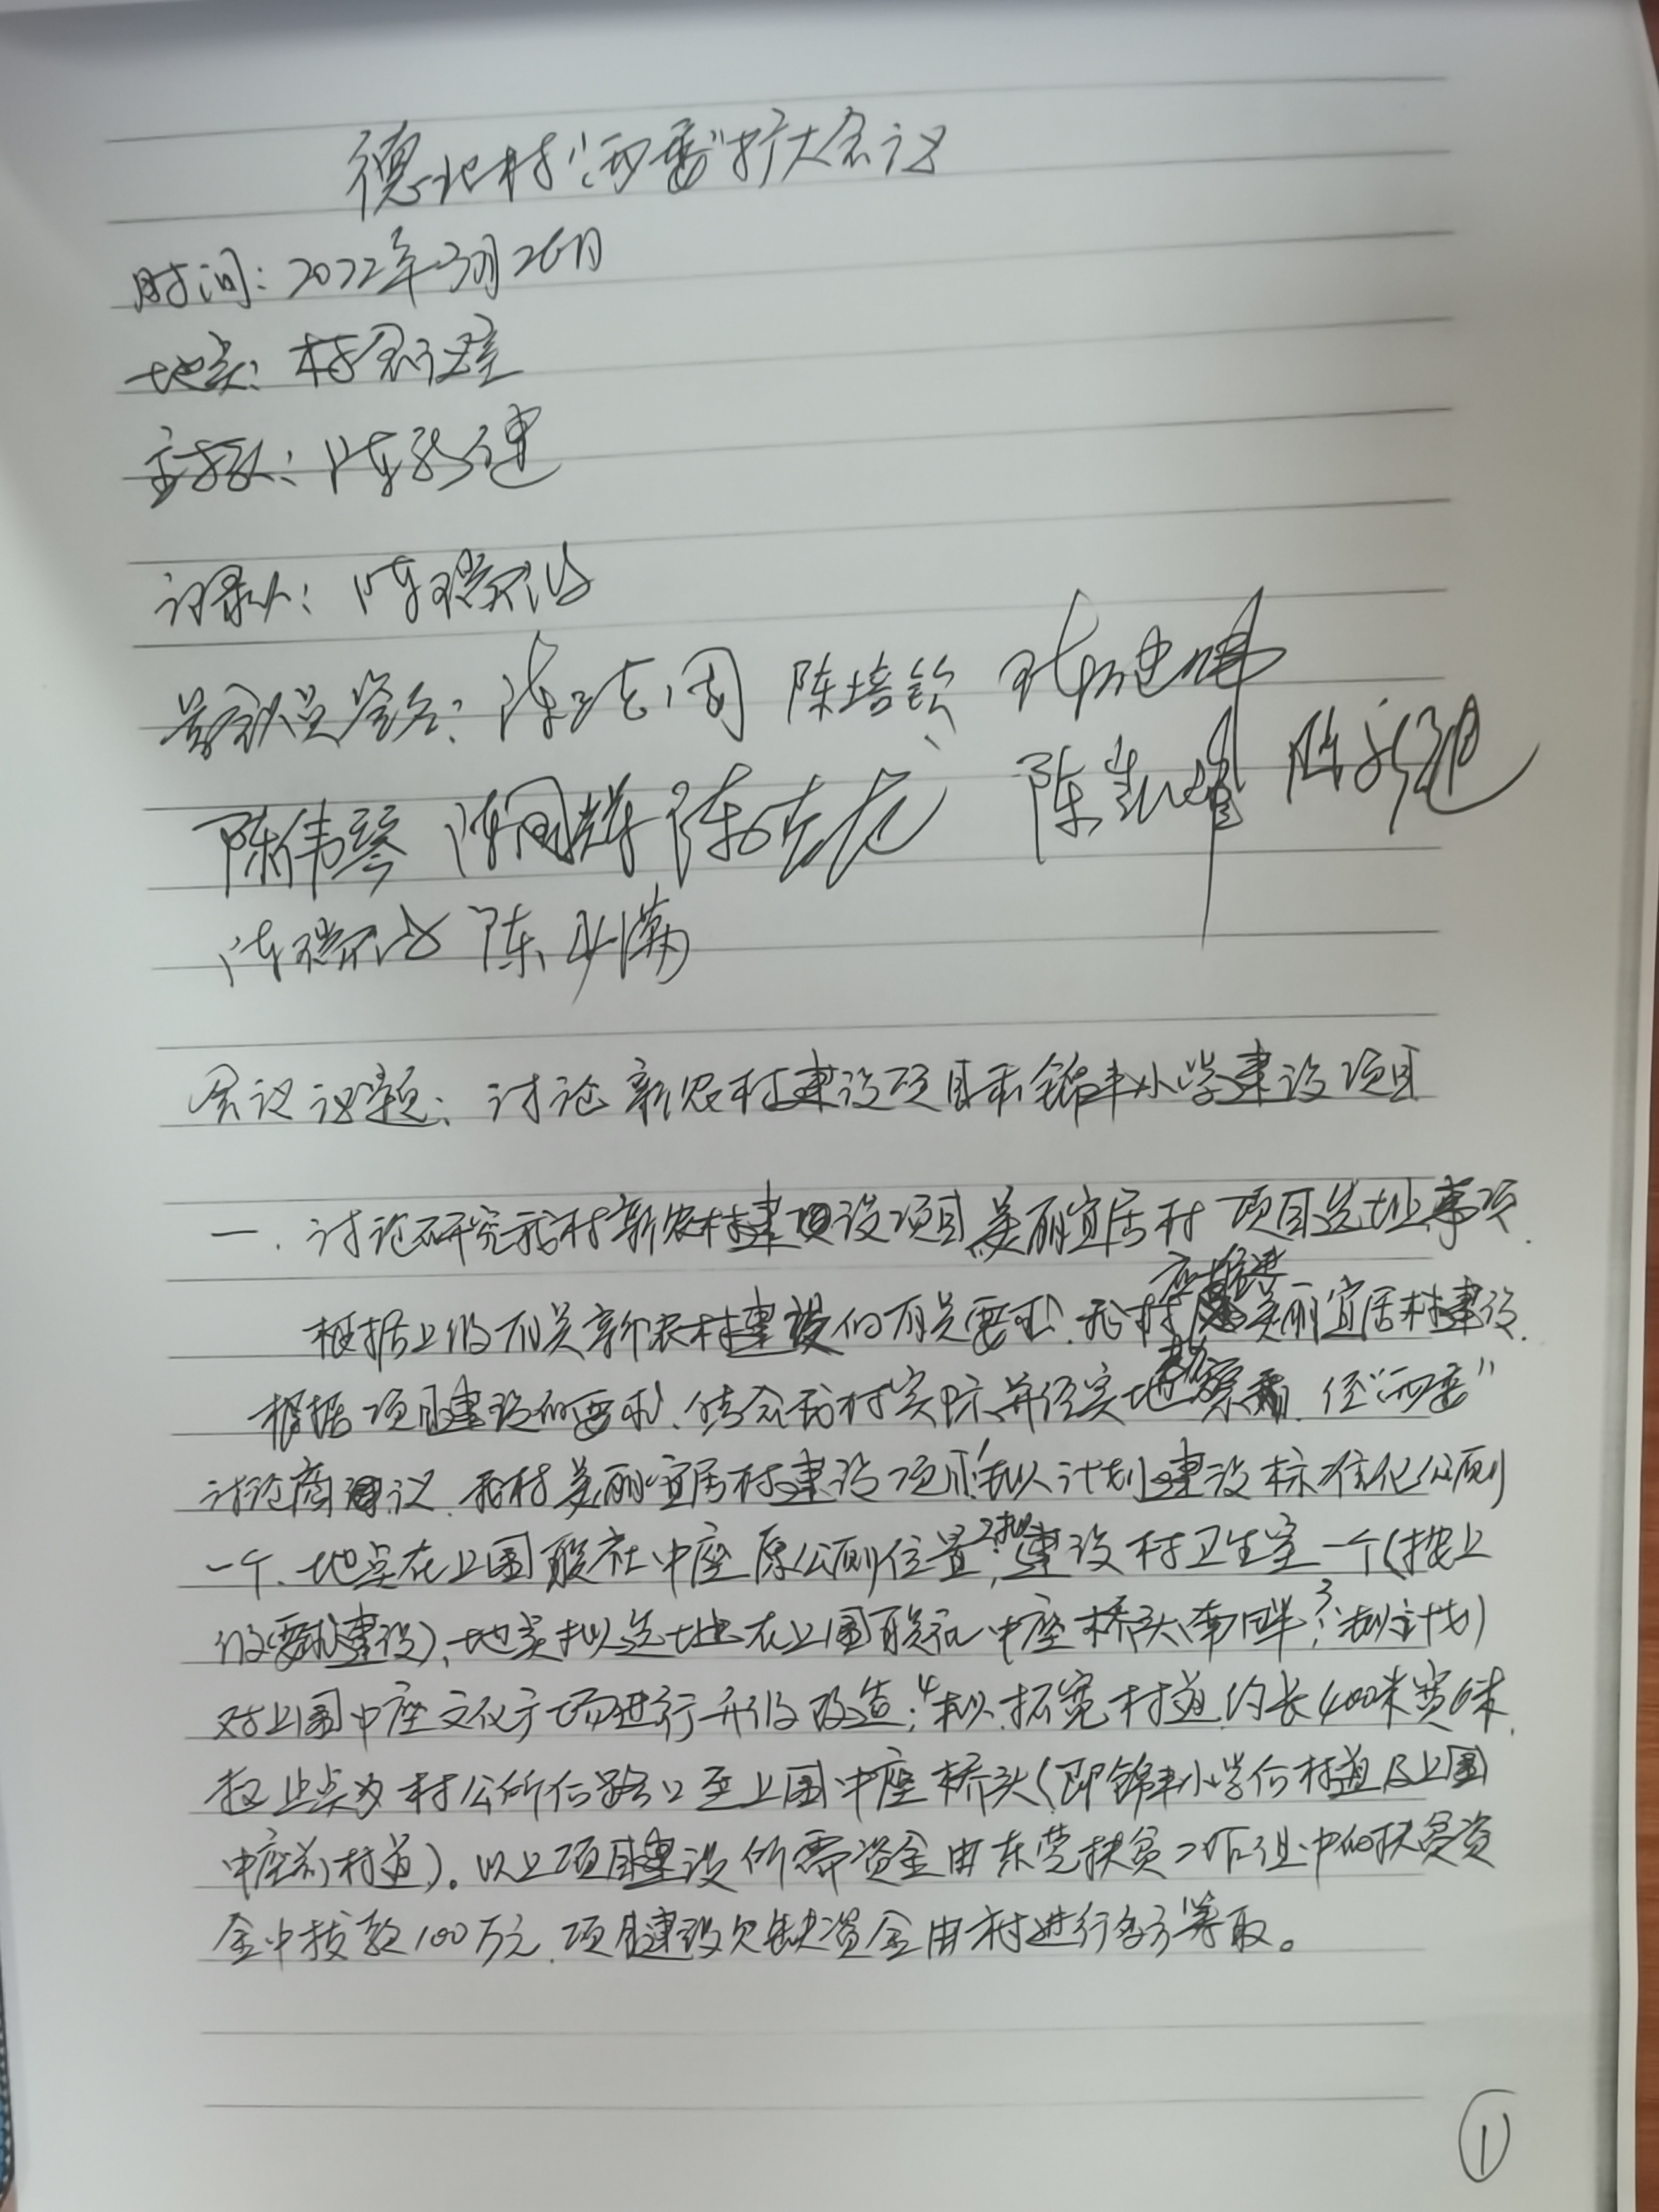 德北村“两委”扩大会议
时间：2022年3月26日
地点：村会议室
主持人：陈新建
记录人：陈瑞
参会人员签名：陈 周 陈培钦
陈伟琴 陈国辉 陈 陈凯 陈
陈瑞 陈 满
会议议题：讨论新农村建设项目和锦丰小学建设项目
一、讨论研究我村新农村建设项目美丽宜居村项目选址事项.
根据上级有关新农村建设的有关要求,我村应推进美丽宜居村建设.
根据项目建设的要求、结合我村实际、并经实地勘察,经“两委”
讨论商议,我村美丽宜居村建设项目:1、拟计划建设标准化公厕
一个、地点在上围股社中座原公厕位置,2、拟建设村卫生室一个(按上
级要求建设)、地点拟选址在上围股社中座桥头南畔;3、拟计划
对上围中座文化广场进行升级改造;4、拟拓宽村道,约长400米宽6米,
起止点为村公所 路口至上围中座桥头(即锦丰小学 村道及上围
中座前村道)。以上项目建设所需资金由东莞扶贫工作组中的扶贫资
金中拨款100万元,项目建设欠缺资金由村进行多方筹取。
①